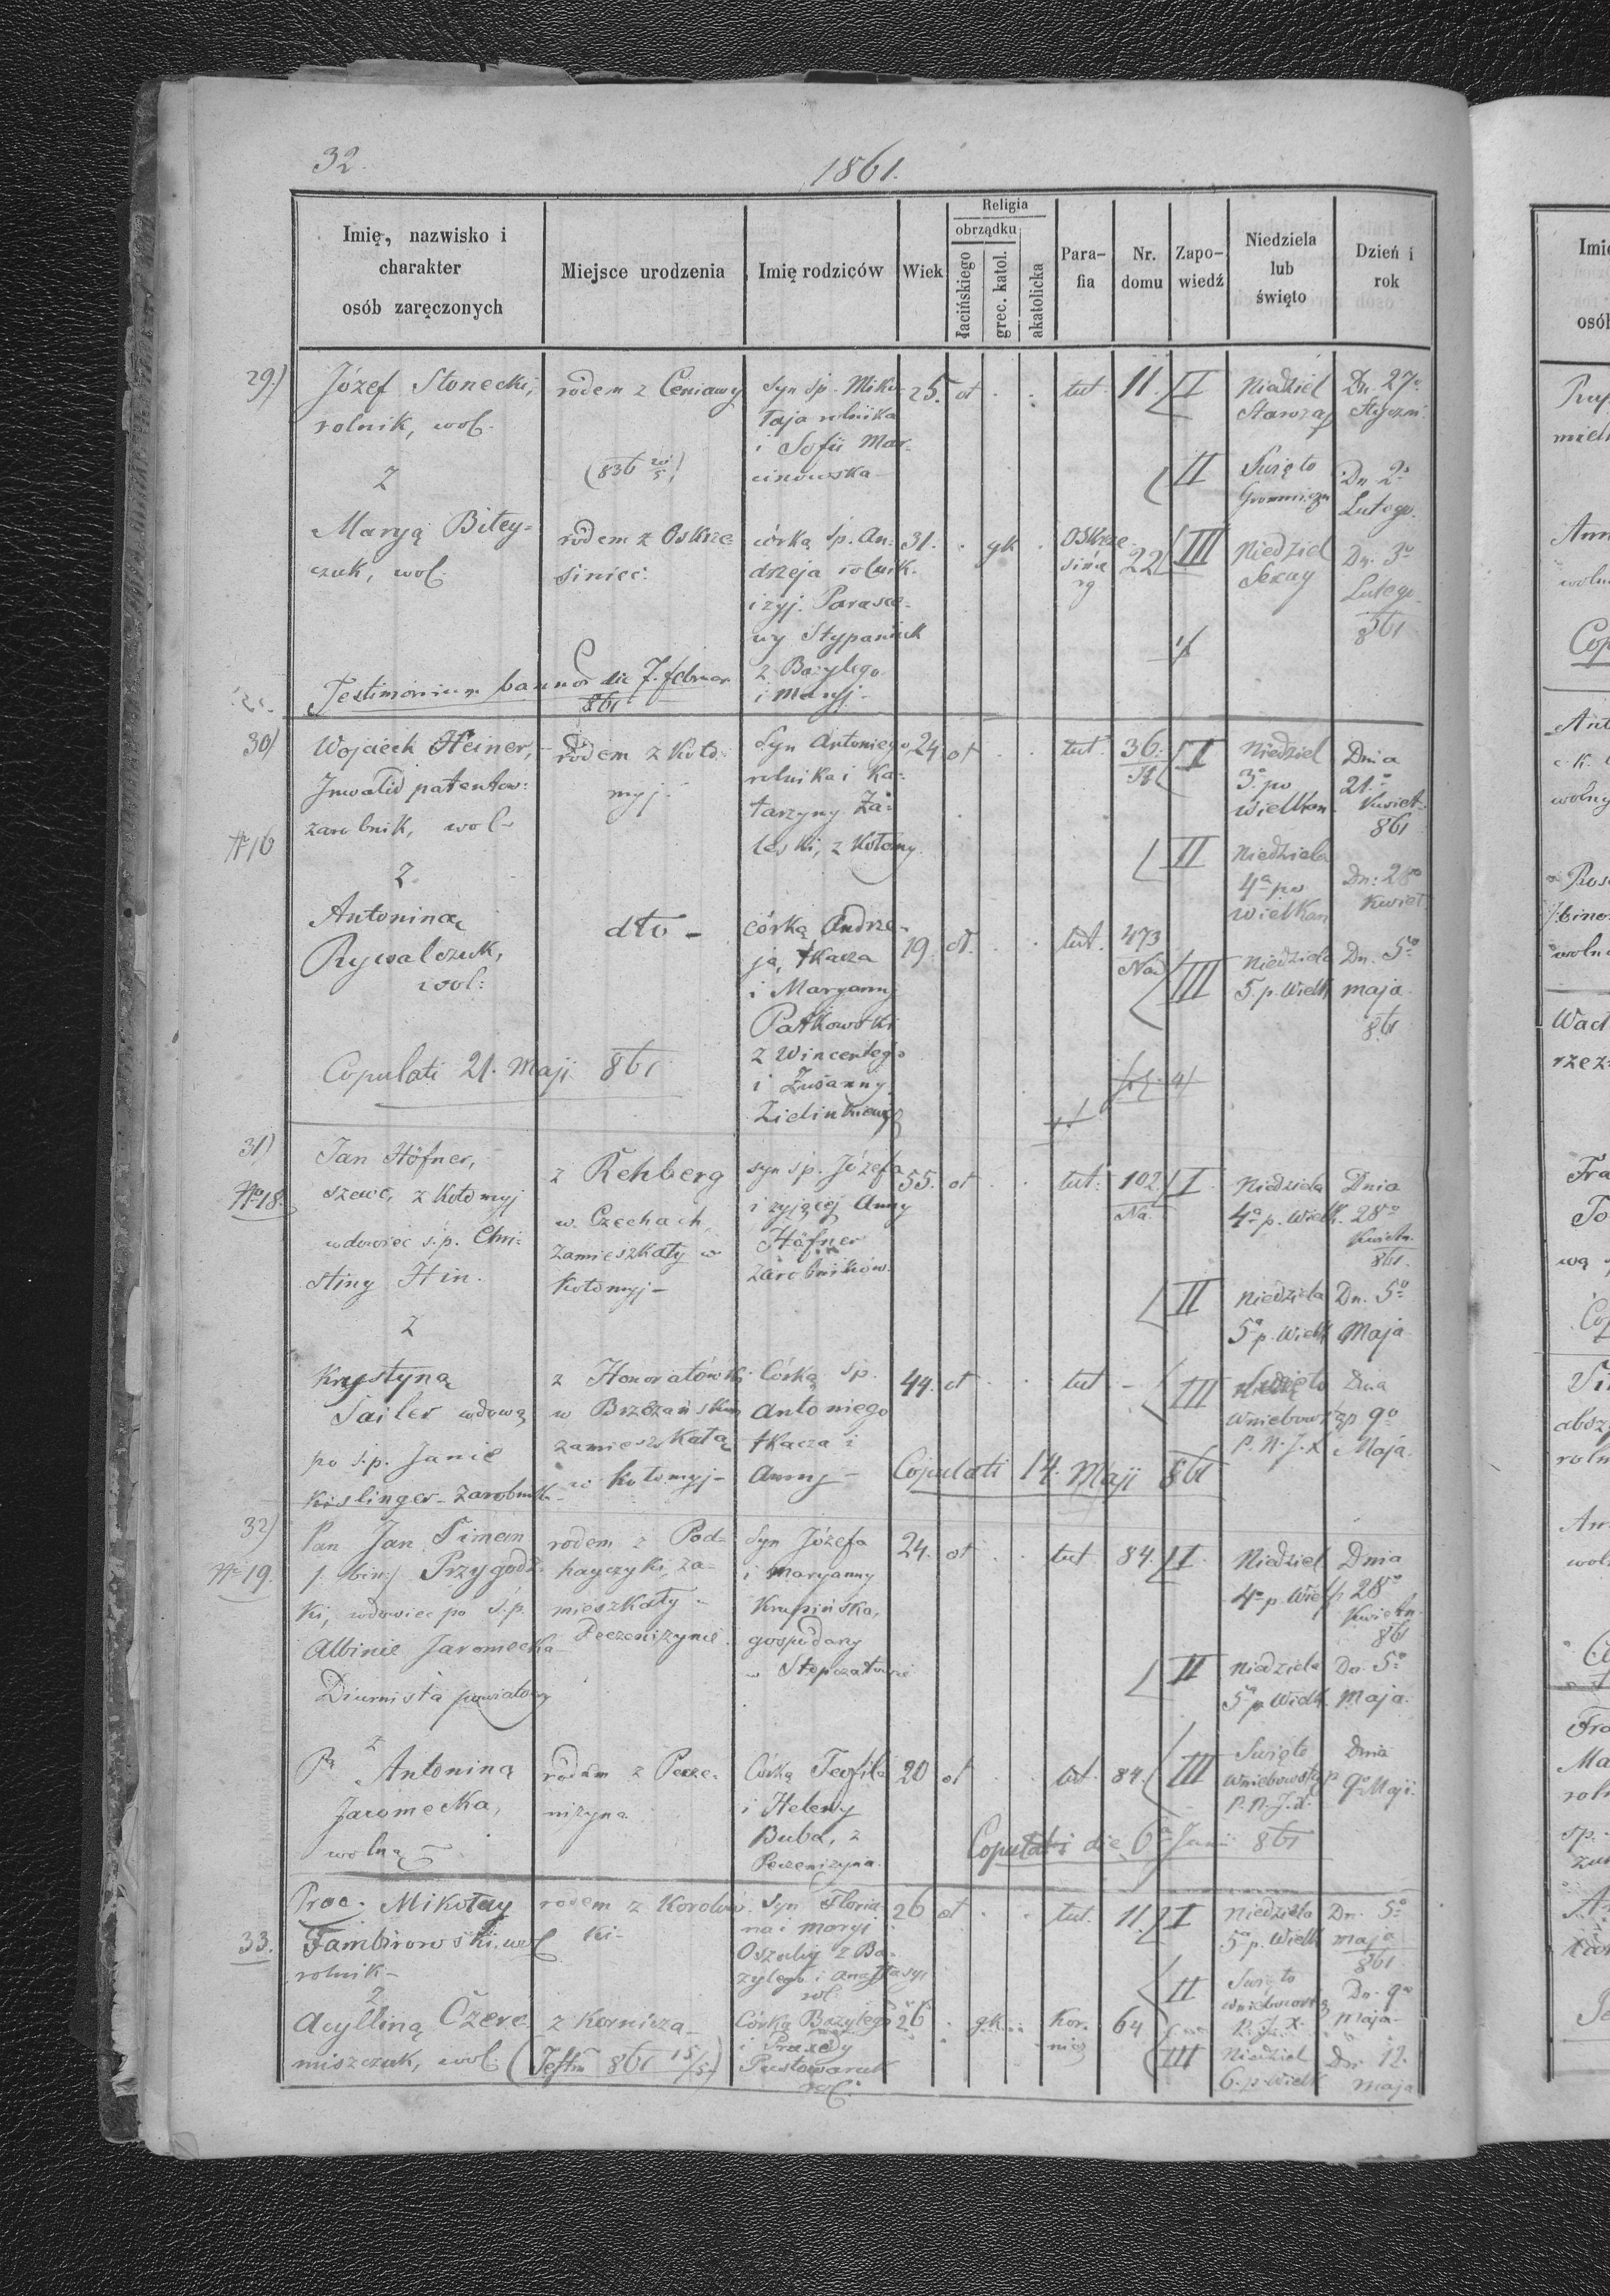 32.
1861.
Imię, nazwisko i
charakter
osób zaręczonych
Miejsce urodzenia
Imię rodziców
Wiek
Religia
obrządku
łacińskiego
grec. katol.
akatolicka
Para-
fia
Nr.
domu
Zapo-
wiedź
Niedziela
lub
święto
Dzień i
rok
29.)
Józef Słonecki,
rolnik, wol.
z
Maryą Bitey=
czuk, wol.
rodem z Ceniawy
rodem z Oskrze=
siniec.
syn śp. Miko-
łaja rolnika
i Sofii Mar-
cinowska
córką śp. An-
drzeja rolnik.
i żyj. Parasce-
wy Stypaniuk
z Bazylego
i Maryj.
25.
31.
gk
tut.
Oskrze-
11.
22
II
II
III
Niedziel
Starozap
Święto
Gromniczn
Niedziel
Sexag
Dn. 27º
Styczni
Dn. 2º
Lutego.
Dn. 3º
Lutego
861
Testimonium bannor die 7. februar
861
30)
№16
Wojciech Heiner,
Inwalid patentow:
zarobnik, wol
z
Antoniną
Rywalczuk,
wol:
rodem z Koło=
myj.
dto -
Syn Antoniego
rolnika i Ka=
tarzyny Za=
leski, z Kołomy.
córką Andrze-
ja, tkacza
i Maryanny
Patkowski
z Wincentego
i Zuzanny
24.
19.
tut.
36.
tut.
473
Nad
I
II
III
Niedziel
3º po
Wielkan.
Niedziela
4ª po
Wielkan
Niedziela
5. p. Wielk
Dnia
21.º
Kwiet.
861
Dn: 28º
Kwiet
Dn. 5º
maja
861
Copulati 21. Maji 861
31)
№18.
Jan Höfner,
szewc, z Kołomyj
wdowiec ś.p. Chri=
stiny Hin.
z
Krystyną
Sailer wdową
po ś.p. Janie
Kislinger - zarobnik
z Rehberg
w Czechach,
zamieszkały w
Kołomyj -
z Honoratówki
w Brzeżańskim
zamieszkałą
w Kołomyj -
syn śp. Józefa
i żyjącej Anny
Höfner
zarobników.
Córką śp.
Antoniego
tkacza i
Anny -
55.
44.
tut.
102.
Na.
tut -
I
II
III
Niedziela
4ª p. Wielk.
Niedziela
5ª p. Wielk
Święto
Wniebowstąp
P. N. J. X
Dnia
28º
Kwietn.
861.
Dn. 5º
Maja
Dnia
9º
Maja.
Copulati 14. Maji 861
32)
№ 19.
Pan Jan Simeon
/: bin:/ Przygodz-
ki, wdowiec po ś.p.
Albinie Jaromecka
Diurnista powiatowy
z
Pª Antoniną
Jaromecka,
wolną
rodem z Pod=
hayczyki, za-
mieszkały w
Peczeniżynie.
rodem z Pecze-
niżyna
Syn Józefa
i Maryanny
Krupińska,
gospodarzy
w Stopczatowie
Córką Teofila
i Heleny
Buba, z
Peczeniżyna
24.
20
tut
84.
tut.
84.
I.
II
III
Niedziel
4ª p. Wielk
Niedziela
5ª p. Wielk.
Święto
Wniebowstąp
P. N. J. X.
Dnia
28º
Kwietn.
861
Dn. 5º
Maja.
Dnia
9º Maji.
Copulati die 6ª Junii 861
33.
Prac. Mikołay
Fambirowski, wol
rolnik -
z
Acylliną Czere
miszczuk, wol.
rodem z Korolów-
ki -
z Kornicza -
(Testm 861 15/5)
Syn Floria-
na i Maryi
z Ba-
zylego i Anastasyi
rol.
Córką Bazylego
i Praxedy
Pustowaruk
rol.
26
26
gk
tut.
Kor.
nicz
11.
64
I
II
III
Niedziela
5ª p. Wielk
Święto
P. J. X.
Niedziel
6. p. Wielk
Dn. 5º
maja
861
Dn. 9º
maja
Dn. 12.
maja